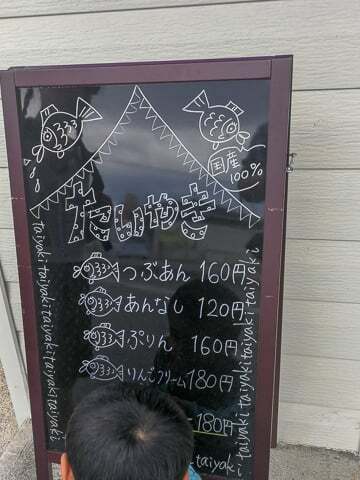 国産
100%
たいやき
つぶあん 160円
あんなし 120円
ぷりん 160円
りんごクリーム 180円
180円
taiyaki taiyaki taiyaki taiyaki taiyaki
taiyaki taiyaki taiyaki taiyaki taiyaki
taiyaki